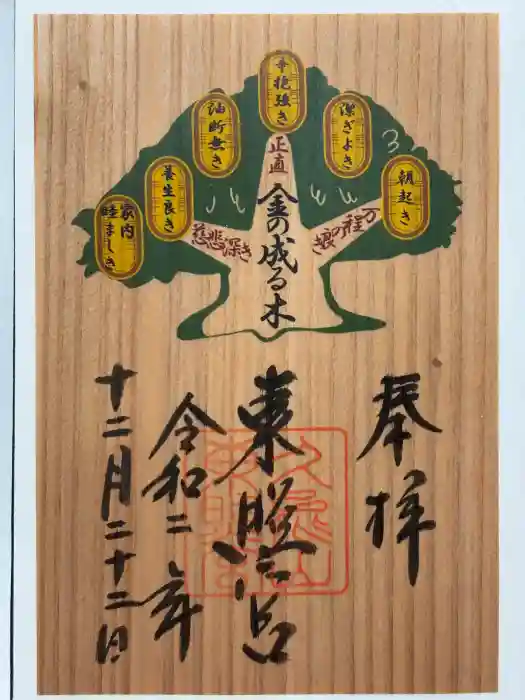 朝起き
潔ぎよき
辛抱強き
油断無き
養生良き
家内
睦ましき
万程の良き
正直
慈悲深き
金の成る木
奉拝
東照宮
令和二年
十二月二十二日